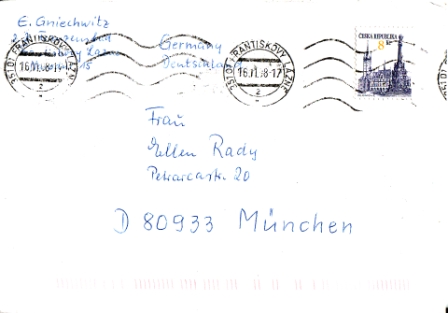 E. Gniechwitz
Germany
Deutschland
351 01 FRANTIŠKOVY LÁZNĚ
16.11.98-17
2
351 01 FRANTIŠKOVY LÁZNĚ
16.11.98-17
2
ČESKÁ REPUBLIKA
8 Kč
Frau
Ellen Rady
Petrarcastr. 20
D 80933 München